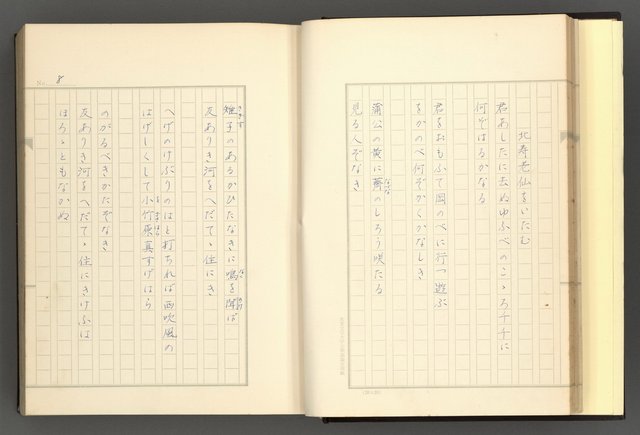 北寿老仙をいたむ
君あしたに去ぬゆふべのこゝろ千千に
何ぞはるかなる
君をおもふて岡のべに行つ遊ぶ
をかのべ何ぞかくかなしき
蒲公の黄に薺のしろう咲たる
見る人ぞなき
No. 8
雉子のあるかひたなきに鳴を聞ば
友ありき河をへだてゝ住にき
へげのけぶりのはと打ちれば西吹風の
はげしくして小竹原真すげはら
のがるべきかたぞなき
友ありき河をへだてゝ住にきけふは
ほろゝともなかぬ
(20×20)